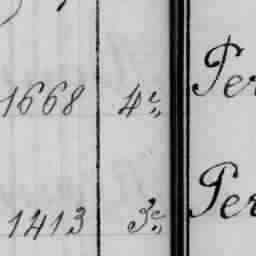 1668 4e,, Per
1413 3e,, Per